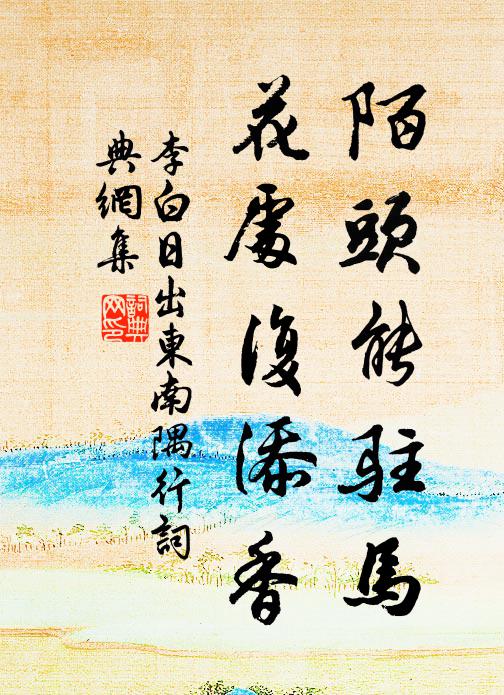 陌頭能駐馬
花處復添香
李白日出東南隅行詞
典網集
詞典
网印